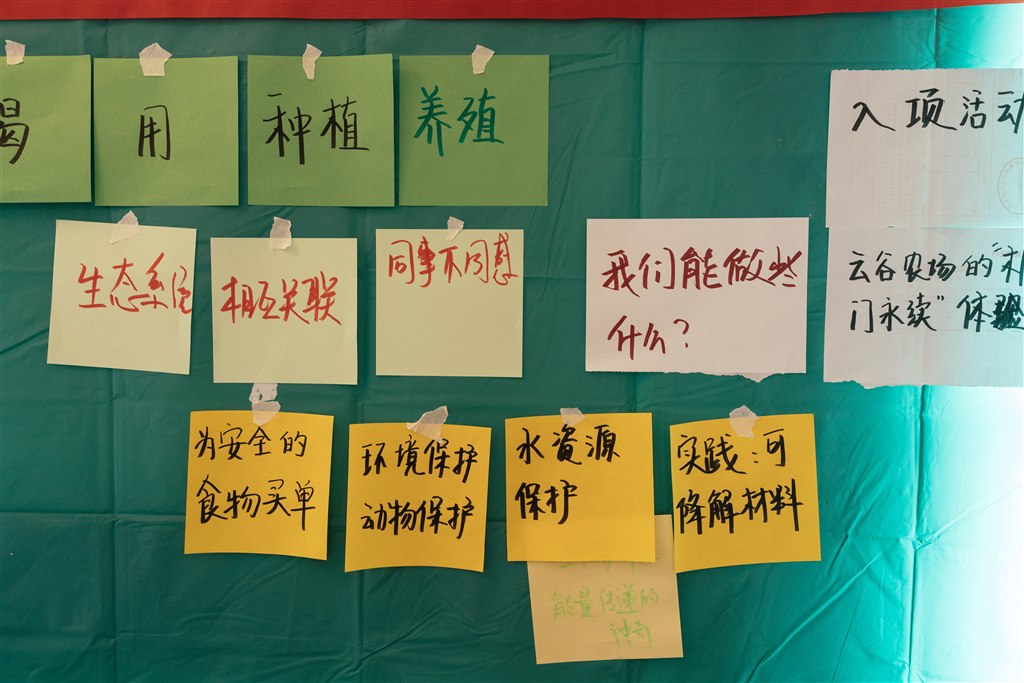 喝
用
种植
养殖
入项活动
生态系统
相互关联
同事不同感
我们能做些
什么？
云谷农场的“朴
门永续”体验
为安全的
食物买单
环境保护
动物保护
水资源
保护
实践：可
降解材料
能量传递的
神奇